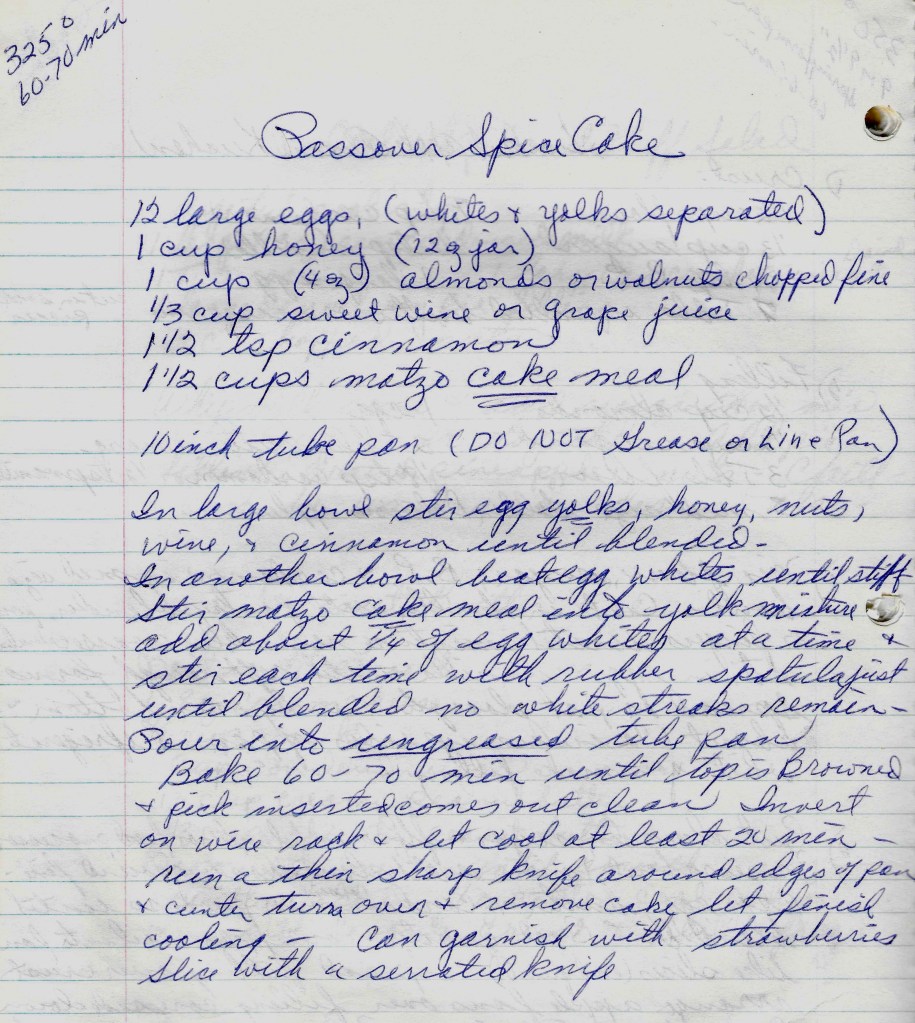 325°
60-70 min
Passover Spice Cake
12 large eggs, (whites & yolks separated)
1 cup honey (12 oz jar)
1 cup (4 oz) almonds or walnuts chopped fine
1/3 cup sweet wine or grape juice
1 1/2 tsp cinnamon
1 1/2 cups matzo cake meal
10 inch tube pan (DO NOT Grease or Line Pan)
In large bowl stir egg yolks, honey, nuts,
wine, & cinnamon until blended -
In another bowl beat egg whites until stiff
Stir matzo cake meal into yolk mixture
add about 1/4 of egg whites at a time &
stir each time with rubber spatula just
until blended no white streaks remain -
Pour into ungreased tube pan
Bake 60-70 min until top is Browned
& pick inserted comes out clean Invert
on wire rack & let cool at least 20 min -
run a thin sharp knife around edges of pan
& center turn over & remove cake let finish
cooling - Can garnish with strawberries
Slice with a serrated knife